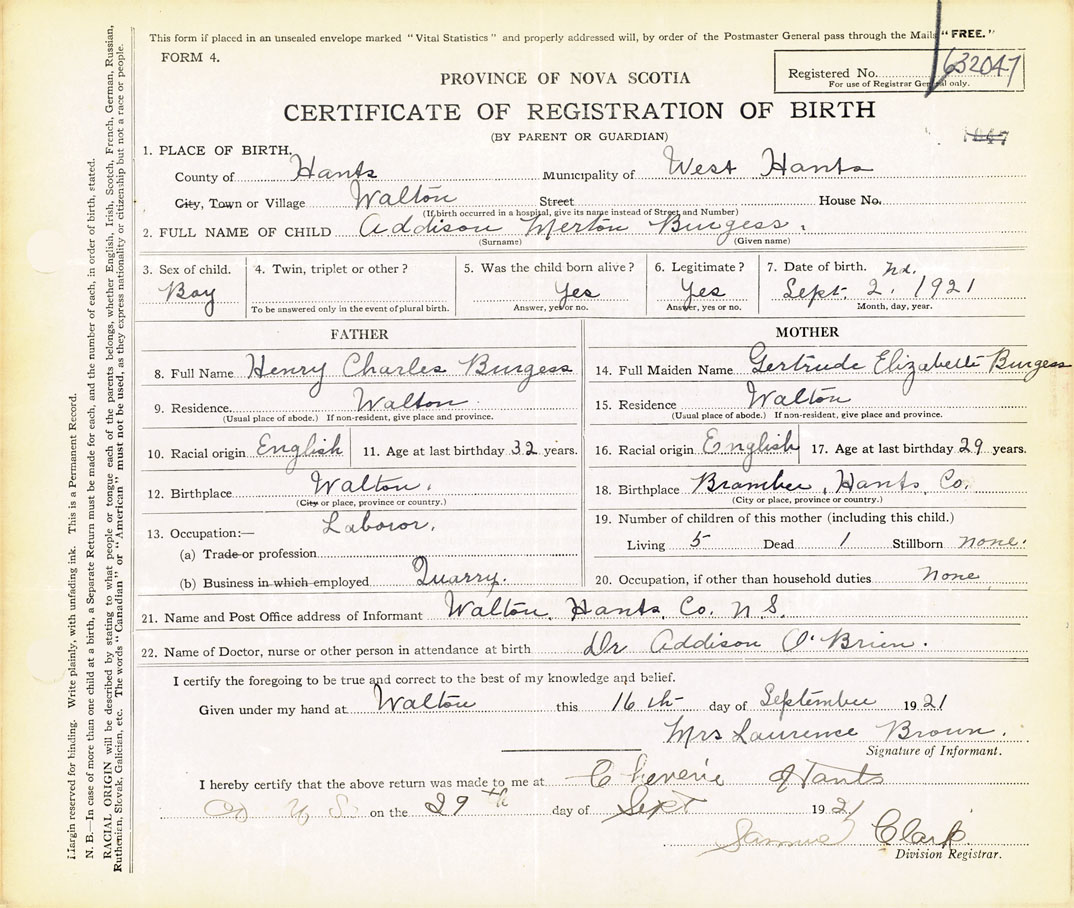 This form if placed in an unsealed envelope marked "Vital Statistics" and properly addressed will, by order of the Postmaster General pass through the Mails "FREE."
FORM 4.
Registered No. 632047
For use of Registrar General only.
PROVINCE OF NOVA SCOTIA
CERTIFICATE OF REGISTRATION OF BIRTH
(BY PARENT OR GUARDIAN)
1. PLACE OF BIRTH,
County of Hants Municipality of West Hants
City, Town or Village Walton Street House No.
(If birth occurred in a hospital, give its name instead of Street and Number)
2. FULL NAME OF CHILD Addison Merton Burgess.
(Surname) (Given name)
3. Sex of child. Boy
4. Twin, triplet or other?
To be answered only in the event of plural birth.
5. Was the child born alive? Yes
Answer, yes or no.
6. Legitimate? Yes
Answer, yes or no.
7. Date of birth. Sept. 2nd. 1921
Month, day, year.
FATHER
8. Full Name Henry Charles Burgess
9. Residence. Walton.
(Usual place of abode.) If non-resident, give place and province.
10. Racial origin English 11. Age at last birthday 32 years.
12. Birthplace Walton.
(City or place, province or country.)
13. Occupation:— Laboror.
(a) Trade or profession
(b) Business in which employed Quarry.
MOTHER
14. Full Maiden Name Gertrude Elizabeth Burgess
15. Residence Walton
(Usual place of abode.) If non-resident, give place and province.
16. Racial origin English 17. Age at last birthday 29 years.
18. Birthplace Bramber, Hants, Co.
(City or place, province or country.)
19. Number of children of this mother (including this child.)
Living 5 Dead 1 Stillborn none.
20. Occupation, if other than household duties none
21. Name and Post Office address of Informant Walton, Hants, Co. N.S.
22. Name of Doctor, nurse or other person in attendance at birth Dr Addison O'Brien.
I certify the foregoing to be true and correct to the best of my knowledge and belief.
Given under my hand at Walton this 16th day of September 1921
Mrs Laurence Brown.
Signature of Informant.
I hereby certify that the above return was made to me at Cheverie Hants
Co N S. on the 29th day of Sept 1921
Samuel Clark
Division Registrar.
Margin reserved for binding. Write plainly, with unfading ink. This is a Permanent Record.
N. B.—In case of more than one child at a birth, a Separate Return must be made for each, and the number of each, in order of birth, stated.
RACIAL ORIGIN will be described by stating to what people or tongue each of the parents belongs, whether English, Irish, Scotch, French, German, Russian,
Ruthenian, Slovak, Galician, etc. The words "Canadian" or "American" must not be used, as they express nationality or citizenship but not a race or people.